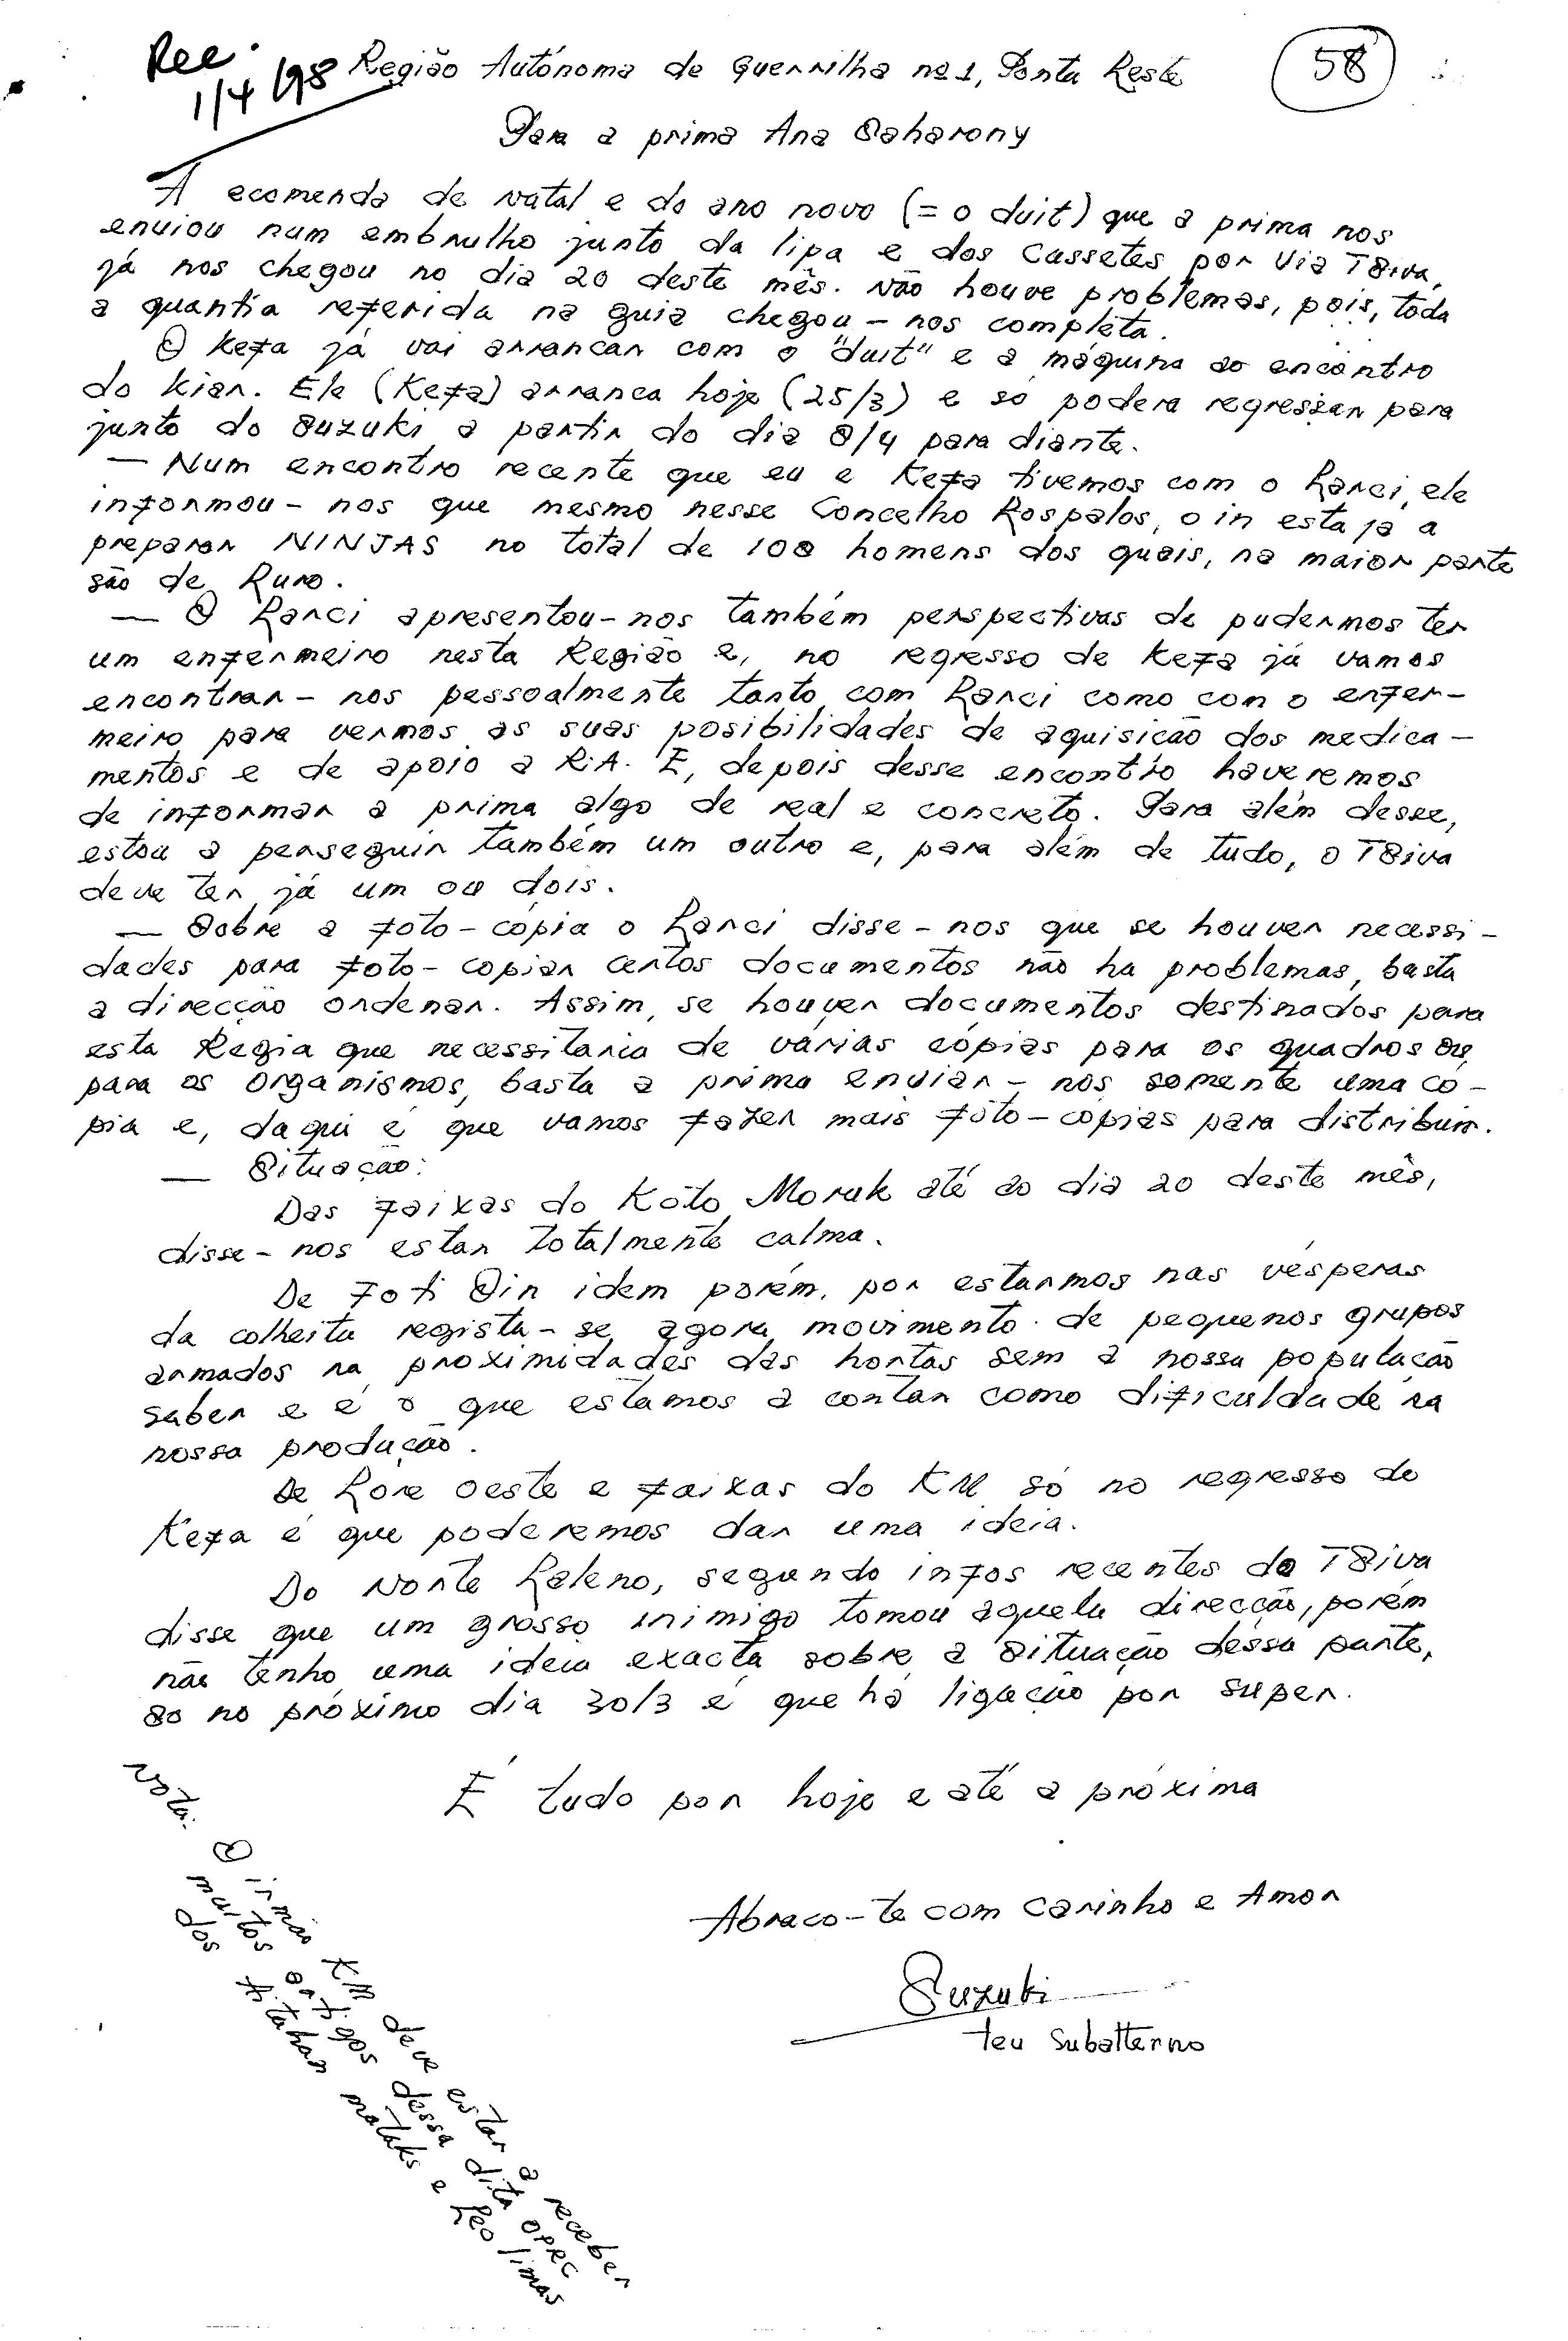 Rec. 1/4/98
Região Autónoma de Guerrilha nº1, Ponta Leste
58
Para a prima Ana Saharony
A ecomenda de natal e do ano novo (= o duit) que a prima nos
enviou num embrulho junto da lipa e dos cassetes por via TSiva,
já nos chegou no dia 20 deste mês. Não houve problemas, pois, toda
a quantia referida na guia chegou-nos completa.
O Kefa já vai arrancar com o "duit" e a máquina ao encontro
do Kiar. Ele (Kefa) arranca hoje (25/3) e só podera regressar para
junto do Suzuki a partir do dia 8/4 para diante.
— Num encontro recente que eu e Kefa tivemos com o Lanci, ele
informou-nos que mesmo nesse Concelho Lospalos, o in esta ja a
preparar NINJAS no total de 100 homens dos quais, na maior parte
são de Luro.
— O Lanci apresentou-nos também perspectivas de pudermos ter
um enfermeiro nesta Região e, no regresso de Kefa já vamos
encontrar-nos pessoalmente tanto com Lanci como com o enfer-
meiro para vermos as suas posibilidades de aquisição dos medica-
mentos e de apoio a R.A. E, depois desse encontro haveremos
de informar a prima algo de real e concreto. Para além desse,
estou a perseguir também um outro e, para além de tudo, o TSiva
deve ter já um ou dois.
— Sobre a foto-cópia o Lanci disse-nos que se houver necessi-
dades para foto-copiar certos documentos não ha problemas, basta
a direcção ordenar. Assim, se houver documentos destinados para
esta Regia que necessitaria de várias cópias para os quadros ou
para os organismos, basta a prima enviar-nos somente uma có-
pia e, daqui é que vamos fazer mais foto-cópias para distribuir.
— Situação:
Das faixas do Koto Moruk até ao dia 20 deste mês,
disse-nos estar totalmente calma.
De Foti Oin idem porém, por estarmos nas vésperas
da colheita regista-se agora movimento de pequenos grupos
armados na proximidades das hortas sem a nossa população
saber e é o que estamos a contar como dificuldade na
nossa produção.
De Lore Oeste e faixas do KM só no regresso do
Kefa é que poderemos dar uma ideia.
Do Norte Laleno, segundo infos recentes do TSiva
disse que um grosso inimigo tomou aquela direcção, porém
não tenho uma ideia exacta sobre a situação dessa parte,
so no próximo dia 30/3 é que há ligação por super.
É tudo por hoje e até a próxima
Abraco-te com carinho e Amor
Suzuki
teu subalterno
Nota: O irmão KM deve estar a receber
muitos artigos dessa dita OPRC
dos titahan mataks e Leo limas